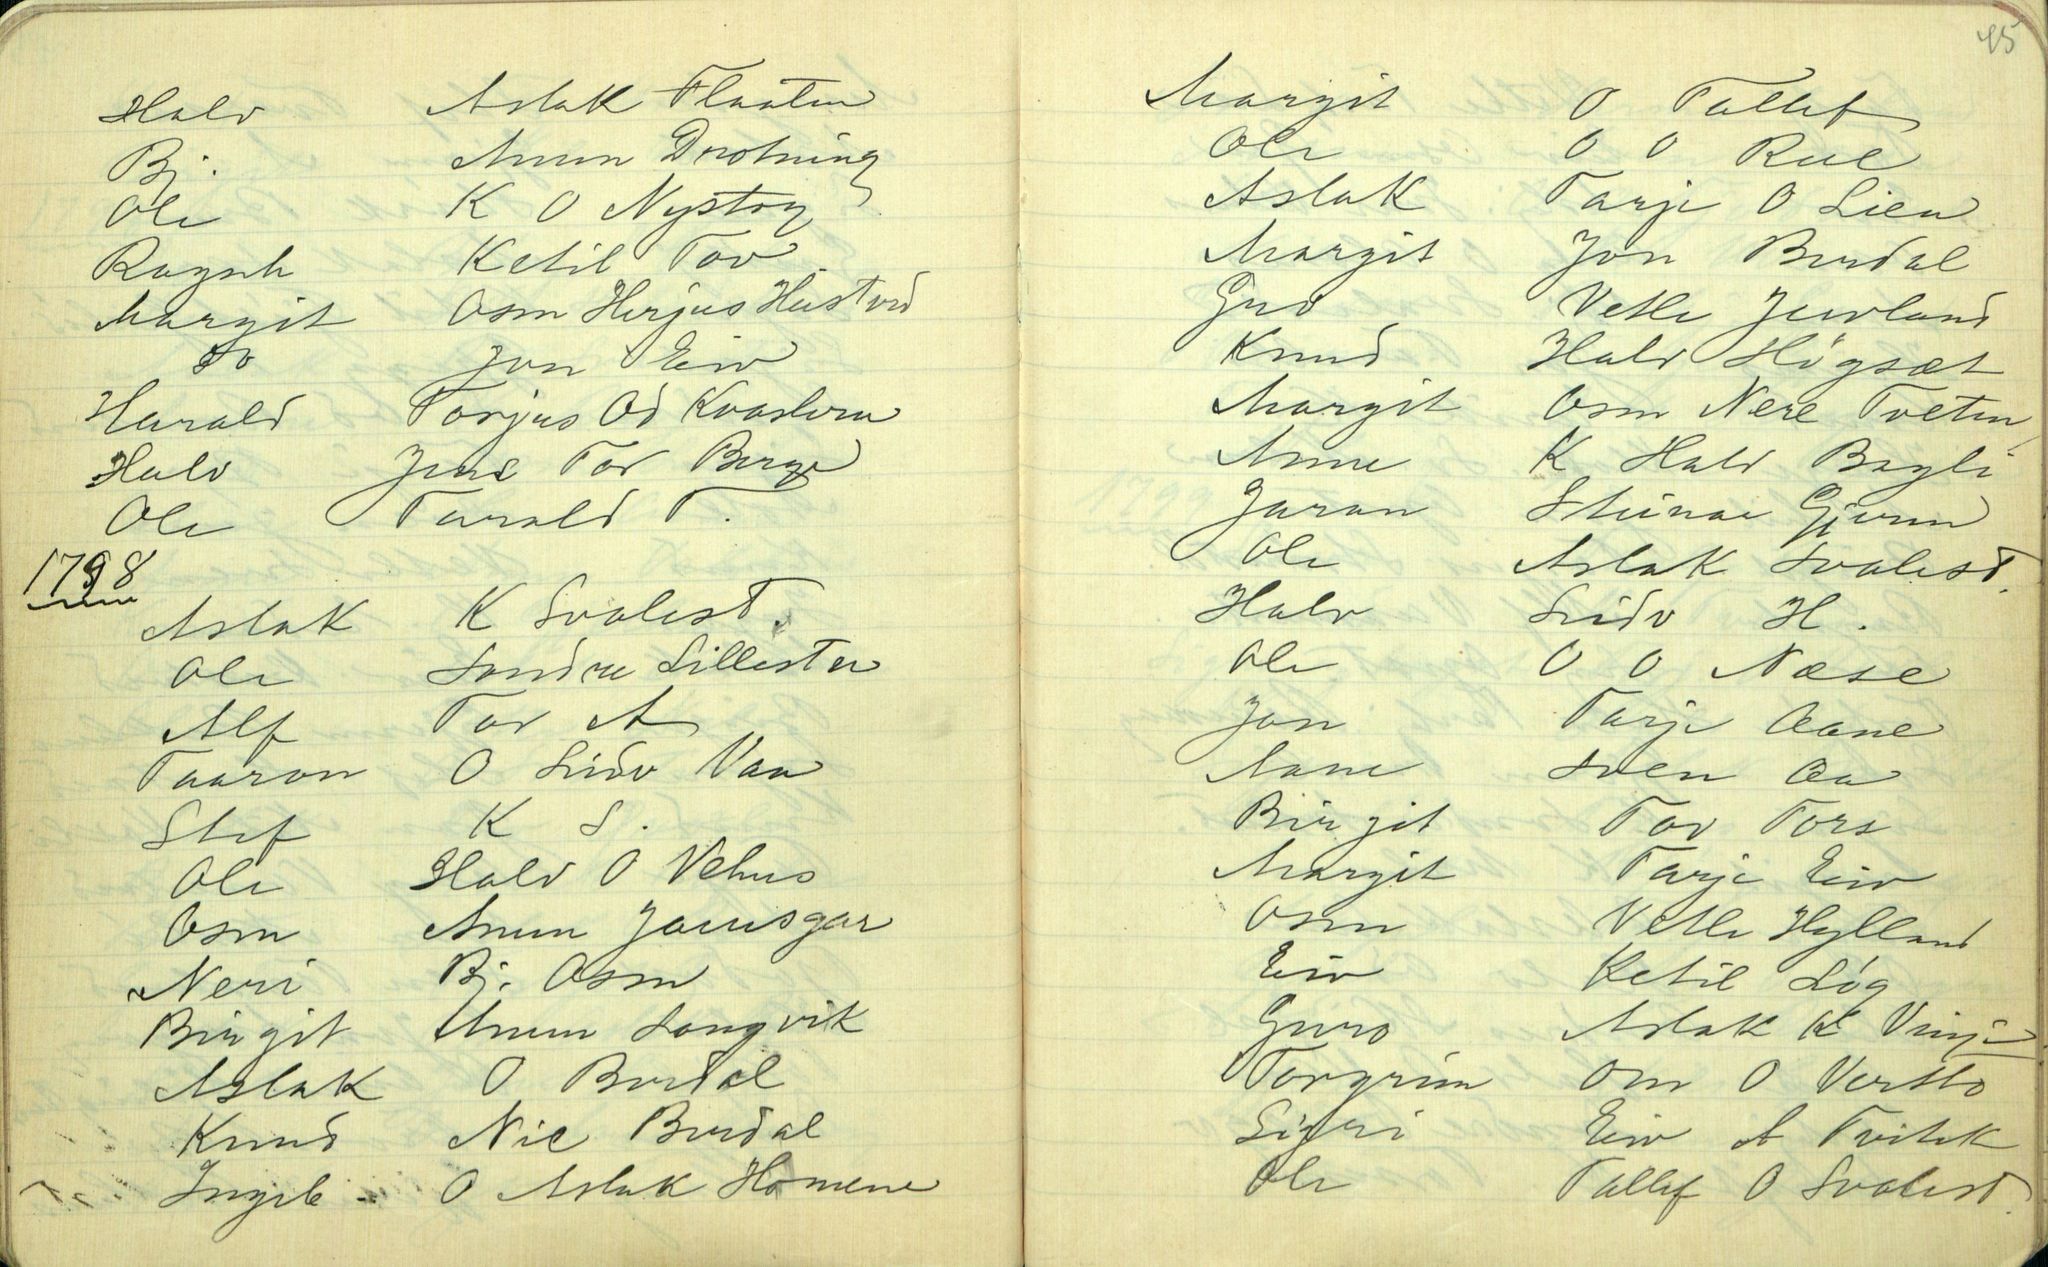 Halv Aslak Flaaten
Bj. Anun Drotning
Ole K O Nystog
Ragnh Ketil Tov
Margit Osm Herjus Hustvd
do Jon Eiv
Harald Torjus Od Kvaslem
Halv Jens Tov Berge
Ole Tarald T.
1798
Aslak K Svalest.
Ole Sondre Lillestu
Alf Tov A
Taaron O Sidv Vaa
Stef K S.
Ole Halv O Vehus
Osm Anun Jamsgar
Neri Bj. Osm
Birgit Anun Songvik
Aslak O Burdal
Knud Nic Burdal
Ingeb O Aslak Homene
45
Margit O Tallef
Ole O O Rue
Aslak Tarje O Lien
Margit Jon Burdal
Gro Vetle Juvland
Knud Halv Høgsæt
Margit Osm Nere Tveten
Anne K Halv Bøgli
Jaran Steinar Gjuvn
Ole Aslak Svalest.
Halv Sidv H.
Ole O O Næse
Jon Tarje Aane
Aane Sven Aa
Birgit Tov Tors
Margit Tarje Eiv
Osm Vetle Hylland
Eiv Ketil Løg
Guro Aslak K Vinje
Torgrim Om O Versto
Sigri Eiv A Tveitek
Ole Tallef O Svalest.